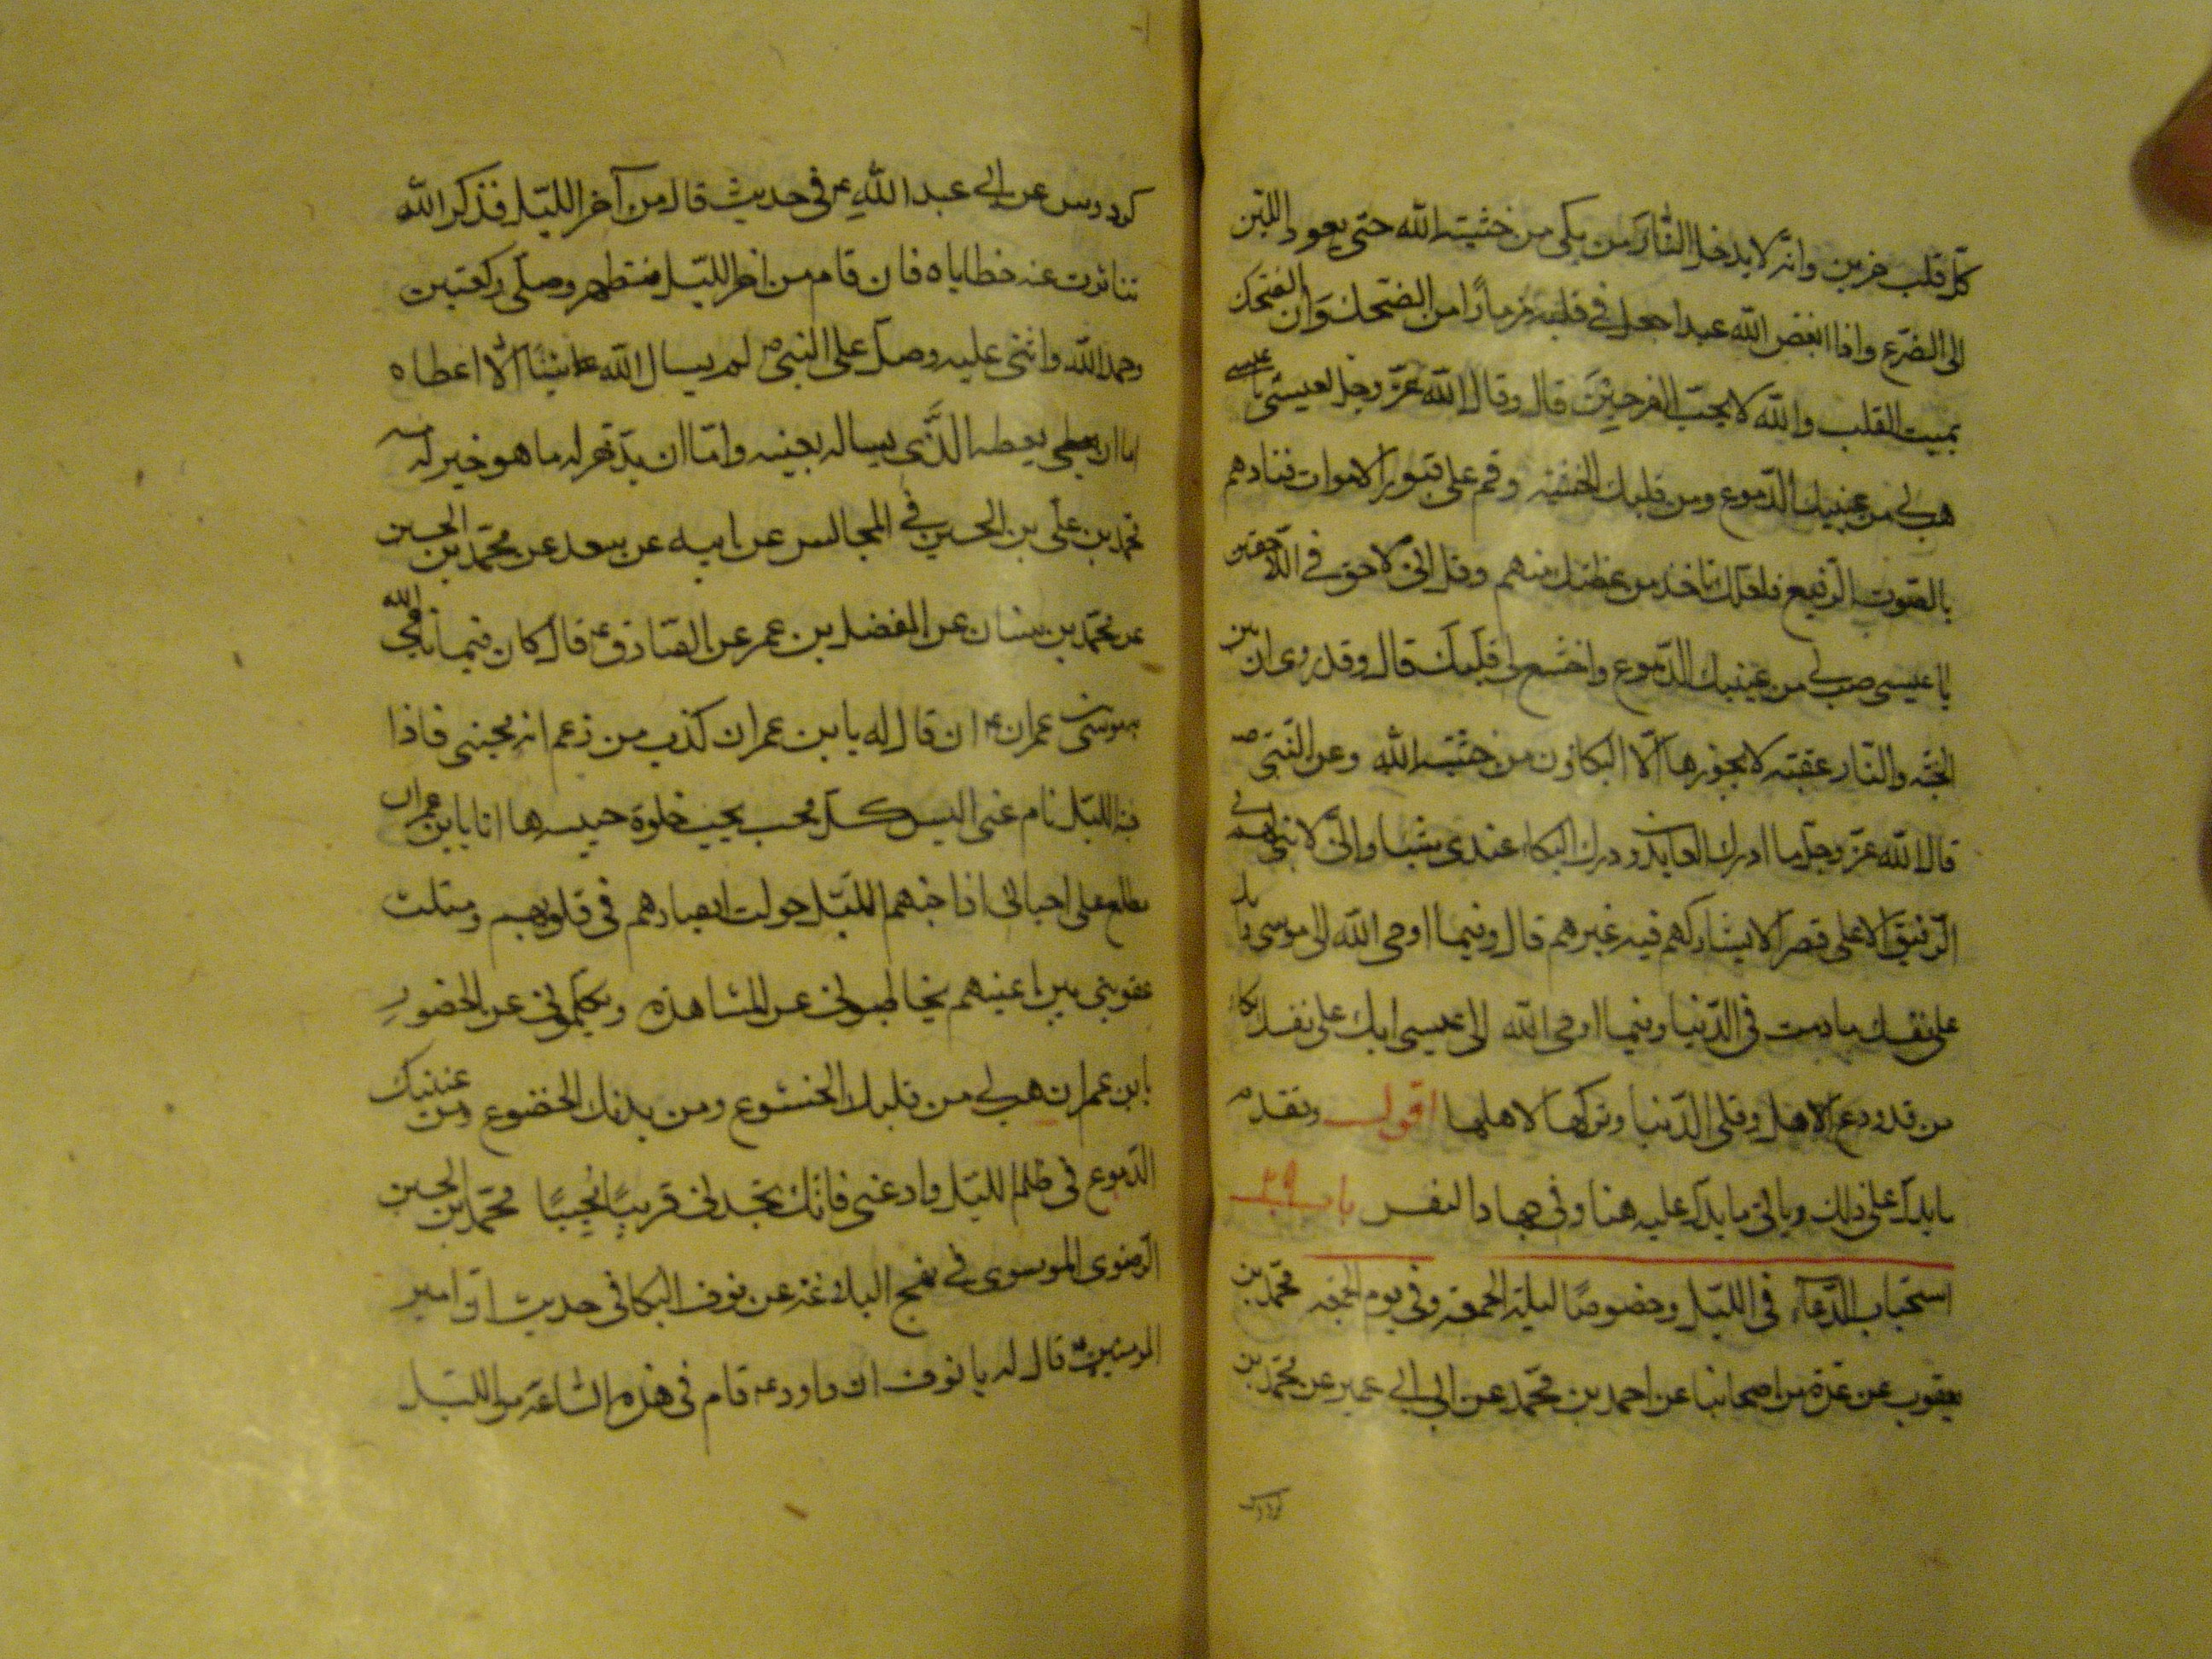 كلّ قلب حزين وانّه لا يدخل النّار من بكى من خشية الله حتى يعود اللبن
الى الضرع واذا ابغض الله عبدا جعل في قلبه مزمارًا من الضحك وَان الضحك
يميت القلب والله لا يحبّ الفرحين قال وقال الله عزّ وجل لعيسى يا عيسى
هب لي من عينيك الدّموع ومن قلبك الخشية وقم على قبور الاموات فنادهم
بالصّوت الرّفيع فلعلّك تاخذ موعظتك منهم وقل انّى لاحق في اللّاحقين
يا عيسى صب لي من عينيك الدّموع واخشع لي قلبك قال وقد روى ان بين
الجنّه والنّار عقبة لا يجوزها الّا البكاؤن من خشية الله وعن النّبي ص
قال الله عزّ وجلّ ما ادرك العابدون درك البكاء عندى شيئا وانّى لابنى لهم في
الرّفيق الاعلى قصرا لا يشاركهم فيه غيرهم قال وفيما اوحى الله الى موسى وابك
على نفسك ما دمت في الدّنيا وفيما اوحى الله الى عيسى ابك على نفسك بكاء
من قد ودع الاهل وقلى الدّنيا وتركها لاهلها اقول وتقدم
ما يدلّ على ذلك وياتى ما يدلّ عليه هنا وفي جهاد النفس باب ٢٩
استحباب الدّعاء في الليل وخصوصًا ليلة الجمعة وفي يوم الجمعه محمّد بن
يعقوب عن عدّة من اصحابنا عن احمد بن محمّد عن ابن ابي عمير عن محمّد بن
كردوس
كردوس عن ابي عبد الله ع في حديث قال من آخر الليل فذكر الله
تناثرت عنه خطاياه فان قام من اخر الليل فتطهر وصلّى ركعتين
وحمد الله واثنى عليه وصلّى على النبي ص لم يسال الله شيئًا الّا اعطاه
اما ان يعطيه الّذى يساله بعينه وامّا ان يدّخر له ما هو خير له منه
محمد بن علي بن الحسين في المجالس عن ابيه عن سعد عن محمّد بن الحسين
عن محمّد بن سنان عن المفضل بن عمر عن الصّادق ع قال كان فيما ناجى الله
به موسى بن عمران ع ان قال له يا بن عمران كذب من زعم انه يحبنى فاذا
جنه الليل نام عنى اليس كل محب يحب خلوة حبيبه ها انا يا بن عمران
مطلع على احبائى اذا جنهم الليل حولت ابصارهم في قلوبهم ومثلت
عقوبتي بين اعينهم يخاطبونى عن المشاهده ويكلمونى عن الحضور
يا بن عمران هب لي من قلبك الخشوع ومن بدنك الخضوع ومن عينيك
الدّموع في ظلم الليل وادعنى فانّك تجدنى قريبًا مجيبًا محمّد بن الحسين
الرضوى الموسوى في نهج البلاغة عن نوف البكا في حديث ان امير
المومنين ع قال له يا نوف ان داود ع قام في هذه السّاعة من الليل